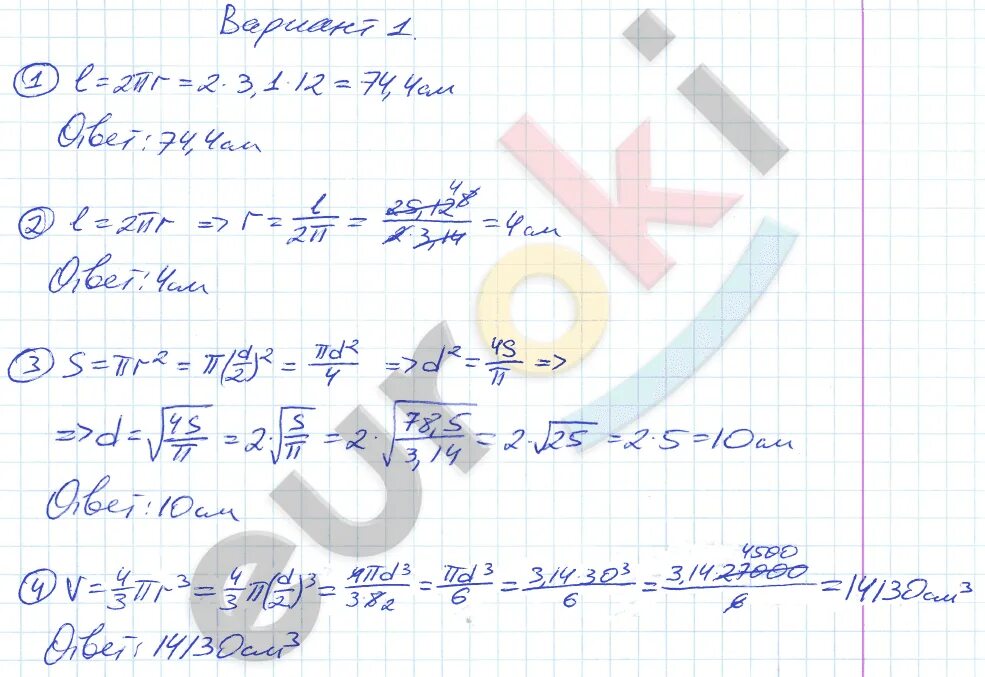 Вариант 1.
① l = 2πr = 2·3,1·12 = 74,4см
Ответ: 74,4см
② l = 2πr => r = l/2π = 25,12 8 4/2·3,14 = 4см
Ответ: 4см
③ S = πr² = π(d/2)² = πd²/4 => d² = 4S/π =>
=> d = √(4S/π) = 2·√(S/π) = 2·√(78,5/3,14) = 2·√25 = 2·5 = 10см
Ответ: 10см
④ V = 4/3πr³ = 4/3π(d/2)³ = 4πd³/3·8 2 = πd³/6 = 3,14·30³/6 = 3,14·27000 4500/6 = 14130см³
Ответ: 14130см³
euroki